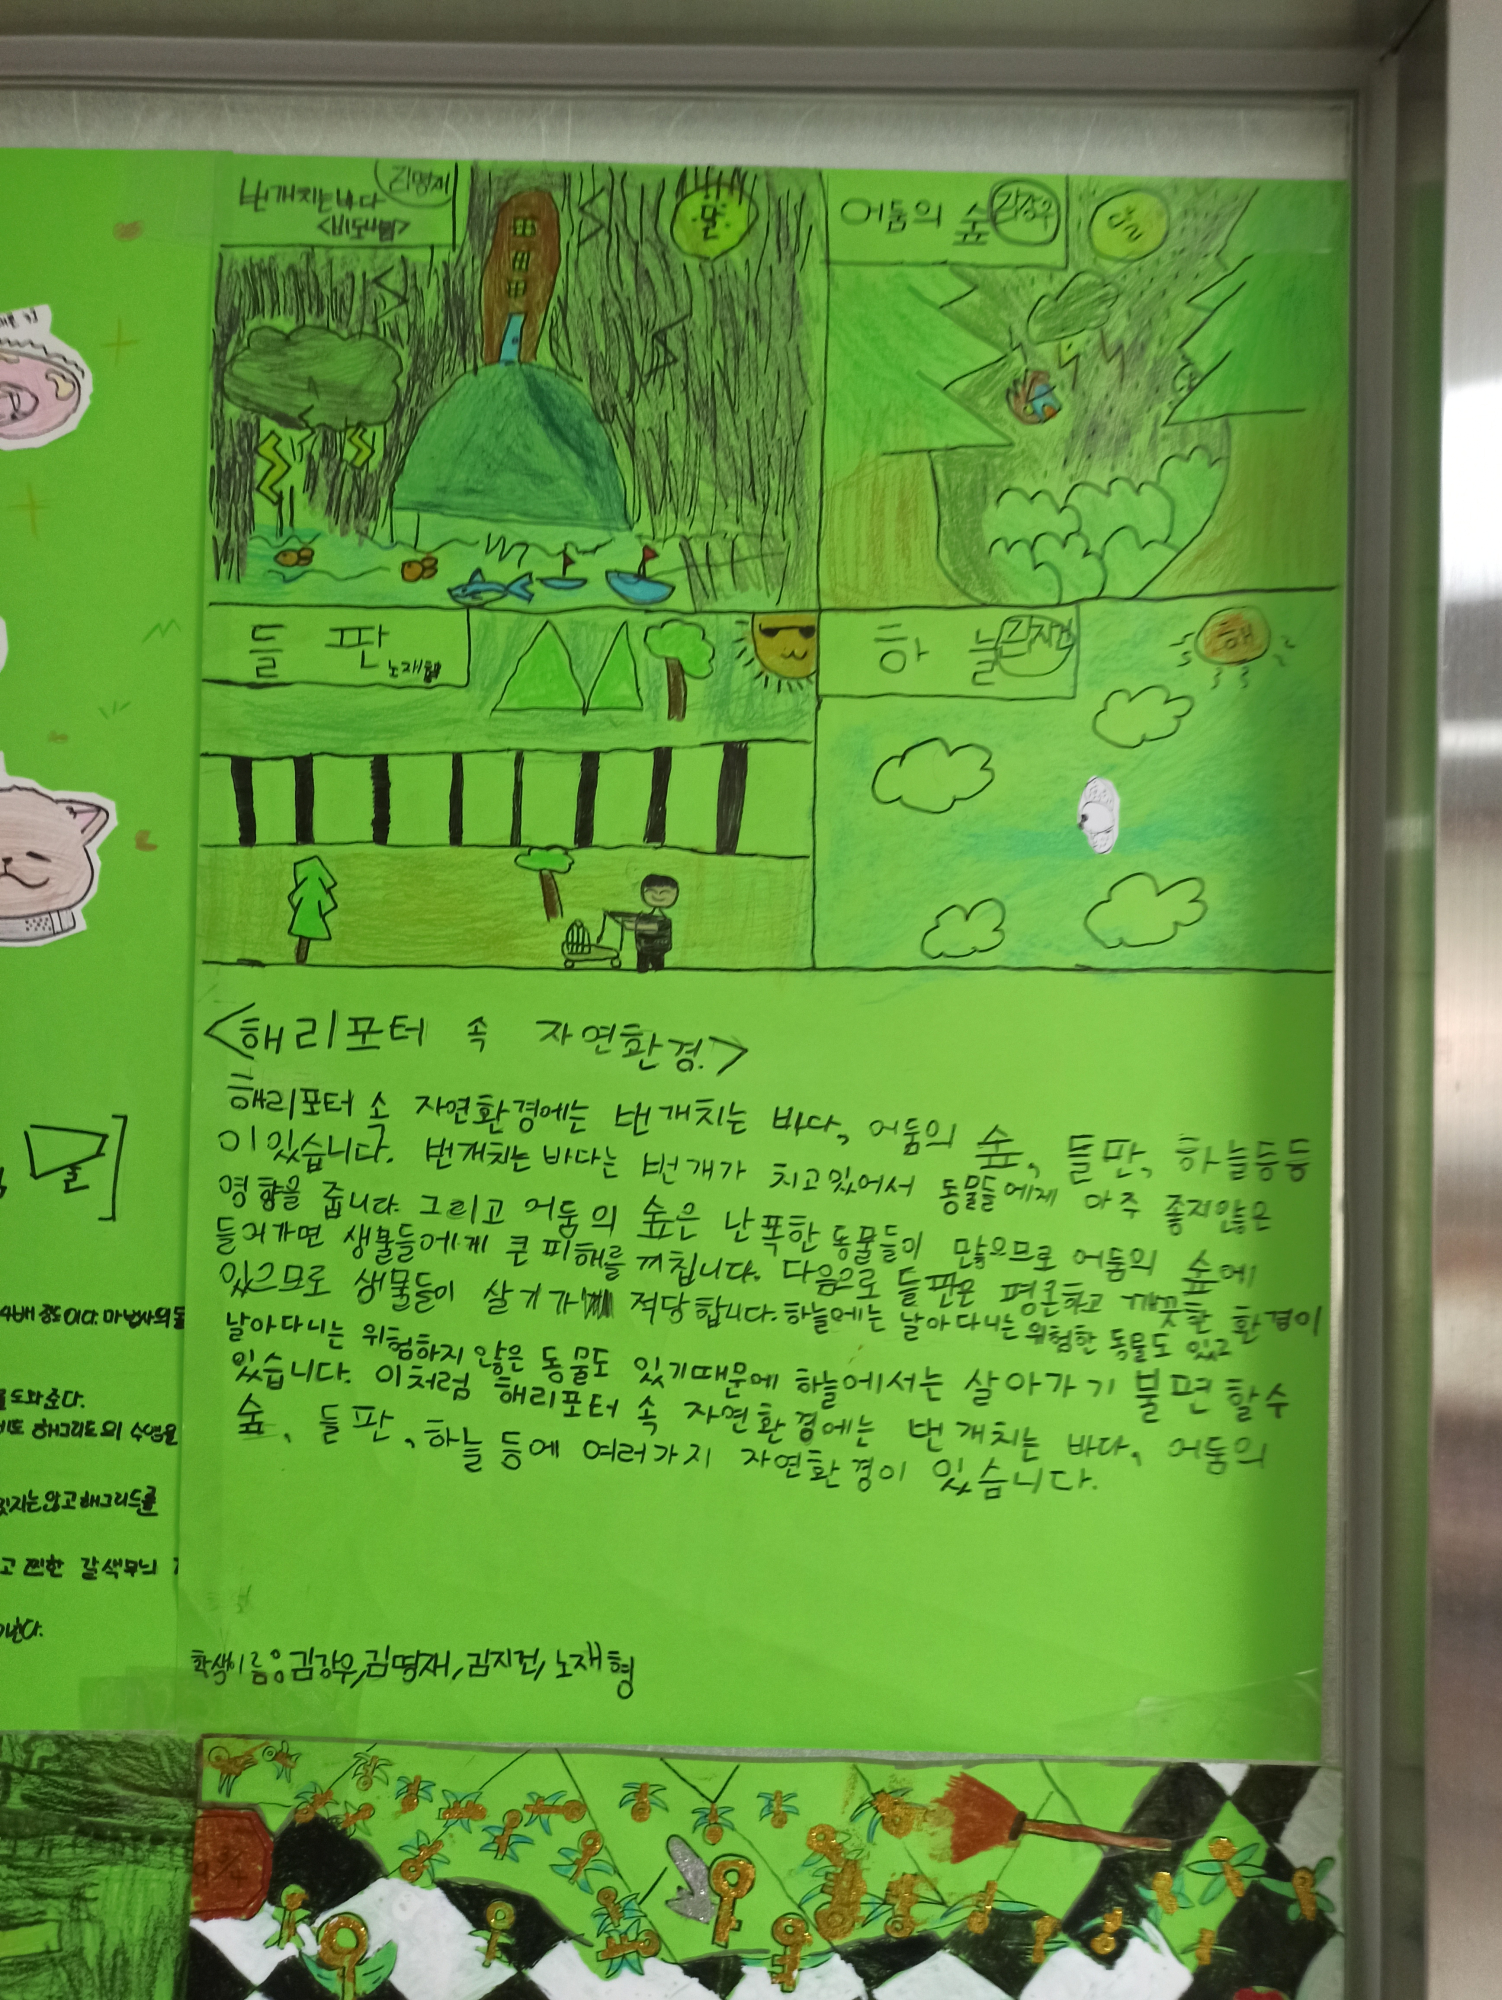 번개치는 바다
김명재
달
어둠의 숲
김강우
들판
노재형
하늘
김지건
해
<해리포터 속 자연환경>
해리포터 속 자연환경에는 번개치는 바다, 어둠의 숲, 들판, 하늘등등
이 있습니다. 번개치는 바다는 번개가 치고있어서 동물들에게 아주 좋지않은
영향을 줍니다. 그리고 어둠의 숲은 난폭한 동물들이 많으므로 어둠의 숲에
들어가면 생물들에게 큰 피해를 끼칩니다. 다음으로 들판은 평온하고 깨끗한 환경이
있으므로 생물들이 살기가 적당합니다. 하늘에는 날아다니는 위험한 동물도 있고
날아다니는 위험하지 않은 동물도 있기때문에 하늘에서는 살아가기 불편할수
있습니다. 이처럼 해리포터 속 자연환경에는 번개치는 바다, 어둠의
숲, 들판, 하늘 등에 여러가지 자연환경이 있습니다.
학생이름: 김강우, 김명재, 김지건, 노재형
술
4배 정도이다. 마법사의 돌
도와준다.
해그리드의 수염을
지는않고 해그리드를
고 찐한 갈색무늬